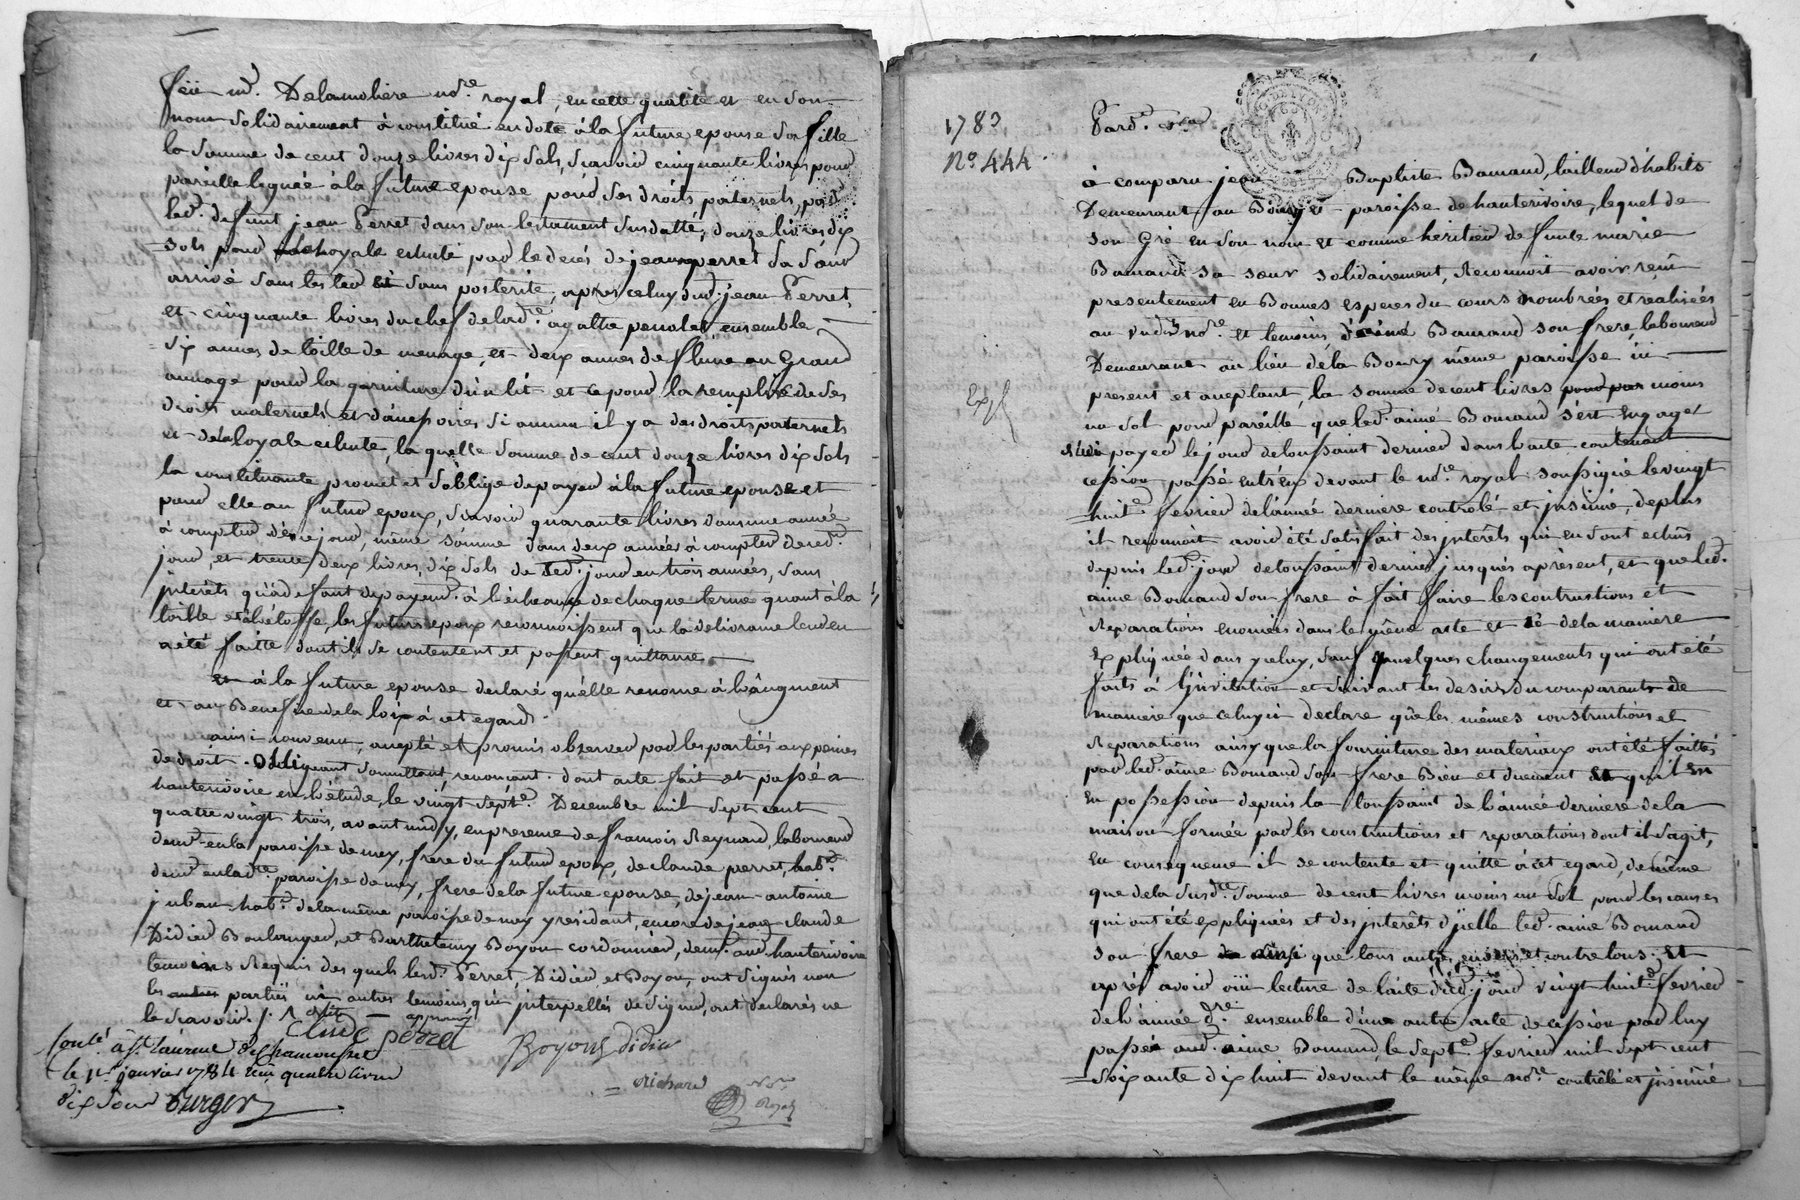 feü m.e Delamoliere no.re royal, en cette qualité et en son
nom solidairement à constitué en dote à la future epouse sa fille
la somme de cent douze livres dix sols, scavoir cinquante livres pour
pareille leguée à la future epouse pour ses droits paternels, par
led. defunt jean Perret dans son testament susdatté, douze livres dix
sols pour loyale echute par le decés de jeanne perret sa sœur
arrivé sans tester et sans posterité, après celuy dud. jean Perret,
et cinquante livres du chef de lad.e agathe penolet ensemble
six aunes de toille de menage, et deux aunes de flune au Grand
aunage pour la garniture d'un lit et ce pour la remplire de ses
droits maternels et d'accessoires si aucun il y a des droits paternels
et de la loyale echute, la quelle somme de cent douze livres dix sols
la constituante promet et s'oblige de payer à la future epouse et
pour elle au futur epoux, scavoir quarante livres dans une année
à compter dès ce jour, même somme dans deux années à compter de ced.
jour, et trente deux livres dix sols de ced. jour en trois années, sans
interêts qu'à defaut de payem.t à l'écheance de chaque terme quant à la
toille et à l'étoffe, les futurs epoux reconnoissent que la delivrance leur en
a été faitte dont ils se contentent et passent quittance
à la future epouse declaré qu'elle renonce à l'augment
et au Benefice de la loix à cet egard.
ainsi convenu, accepté et promis observer par les partiés aux peines
de droit. obligeant soumettant renonçant. dont acte fait et passé a
hauterivoire en l'etude, le vingt sept.e Decembre mil sept cent
quatre vingt trois, avant midy, en presence de francois Reynard, laboureur
dem.t en la paroisse de mey, frere du futur epoux, de claude perret, hab.t
dem.t en lad.te paroisse de mey, frere de la future epouse, de jean antoine
juban hab.t de la même paroisse de mey y residant, encore de jean claude
Didier Boulanger, et Barthelemy Boyon cordonnier, dem.t aud. hauterivoire
temoins Requis des quels lesd. Perret, Didier, et Boyon, ont signés non
les partiës ni autres temoins qui interpellés de signer, ont declarés ne
le scavoir.
Clude perret
Boyon Didier
Conté à St Laurent de chamousset
le 1er janvier 1784 reçu quatre livres
dix sous Burger
Richard no.re Royal
1783
N.º 444.
Pard.t
Expl
à comparu jean Baptiste Bomand, tailleur d'habits
Demeurant au Bourg et paroisse de hauterivoire, lequel de
son Gré en son nom et comme heritier de funte marie
Bomand sa sœur solidairement, Reconnoit avoir reçu
presentement en Bonnes especes du cours nombrées et realisées
au vu du no.re et temoins, d'aimé Bomand son frere, laboureur
Demeurant au lieu de la Boury même paroisse ici
present et acceptant, la somme de cent livres moins
un sol pour pareille que led. aimé Bomand s'est Engagé
payer le jour de toussaint dernier dans l'acte contenant
cession passé entr'eux devant le no.re royal soussigné le vingt
huit.e fevrier de l'année derniere controlé et insinué, de plus
il reconnoit avoir été satisfait des interêts qui en sont echus
depuis led. jour de toussaint dernier jusqués àprésent, et que led.
aimé Bomand son frere à fait faire les contructions et
Reparations enoncées dans le même acte et de la maniere
Expliquée dans yceluy, sauf quelques changements qui ont été
faits à l'invitation et suivant les desirs du comparant de
maniere que celuy ci declare que les mêmes constructions et
Reparations ainsy que la fourniture des materiaux ont été faittes
par led. aimé Bomand son frere Bien et duement
En possession depuis la toussaint de l'année derniere de la
maison formée par les constructions et reparations dont il s'agit,
En consequence il se contente et quitte à cet egard, de même
que de la susd.te somme de cent livres moins un sol pour les causes
qui ont été expliqués et des interêts d'jcelle led. aimé Bomand
son frere que tous autres envers et contre tous. Et
après avoir oüi lecture de l'acte dud. jour vingt huit.e fevrier
de l'année d.re ensemble d'une autre acte de cession par luy
passée aud. aimé Bomand, le sept.e fevrier mil sept cent
soixante dix huit devant le même no.re contrôlé et jnsinué